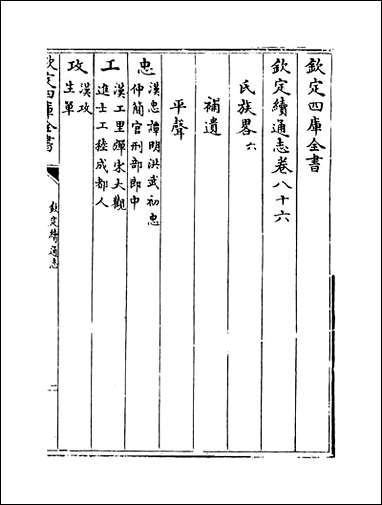 欽定四庫全書
欽定續通志卷八十六
氏族畧六
補遺
平聲
忠
漢忠譚明洪武初忠
仲簡官刑部郎中
工
漢工里禪宋大觀
進士工稜成都人
攻
漢攻
生單
欽定四庫全書
欽定續通志